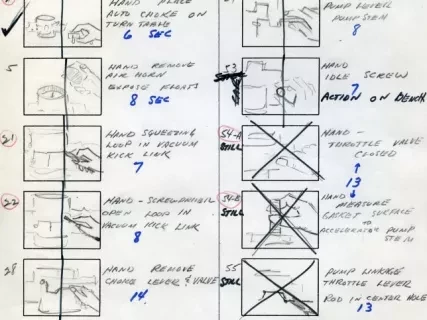 HAND PLACE
AUTO CHOKE ON
TURN TABLE
6 SEC
HAND REMOVE
AIR HORN
EXPOSE FLOATS
8 SEC
21
HAND SQUEEZING
LOOP IN VACUUM
KICK LINK
7
22
HAND - SCREWDRIVER
OPEN LOOP IN
VACUUM KICK LINK
8
28
HAND REMOVE
CHOKE LEVER & VALVE
14
PUMP LEVER
PUMP STEM
8
53
HAND
IDLE SCREW
7
ACTION ON BENCH
54-A
STILL
HAND -
THROTTLE VALVE
CLOSED
13
54-B
STILL
HAND
MEASURE
GASKET SURFACE
TO
ACCELERATOR PUMP
STEM
55
STILL
PUMP LINKAGE
THROTTLE LEVER
ROD IN CENTER HOLE
13